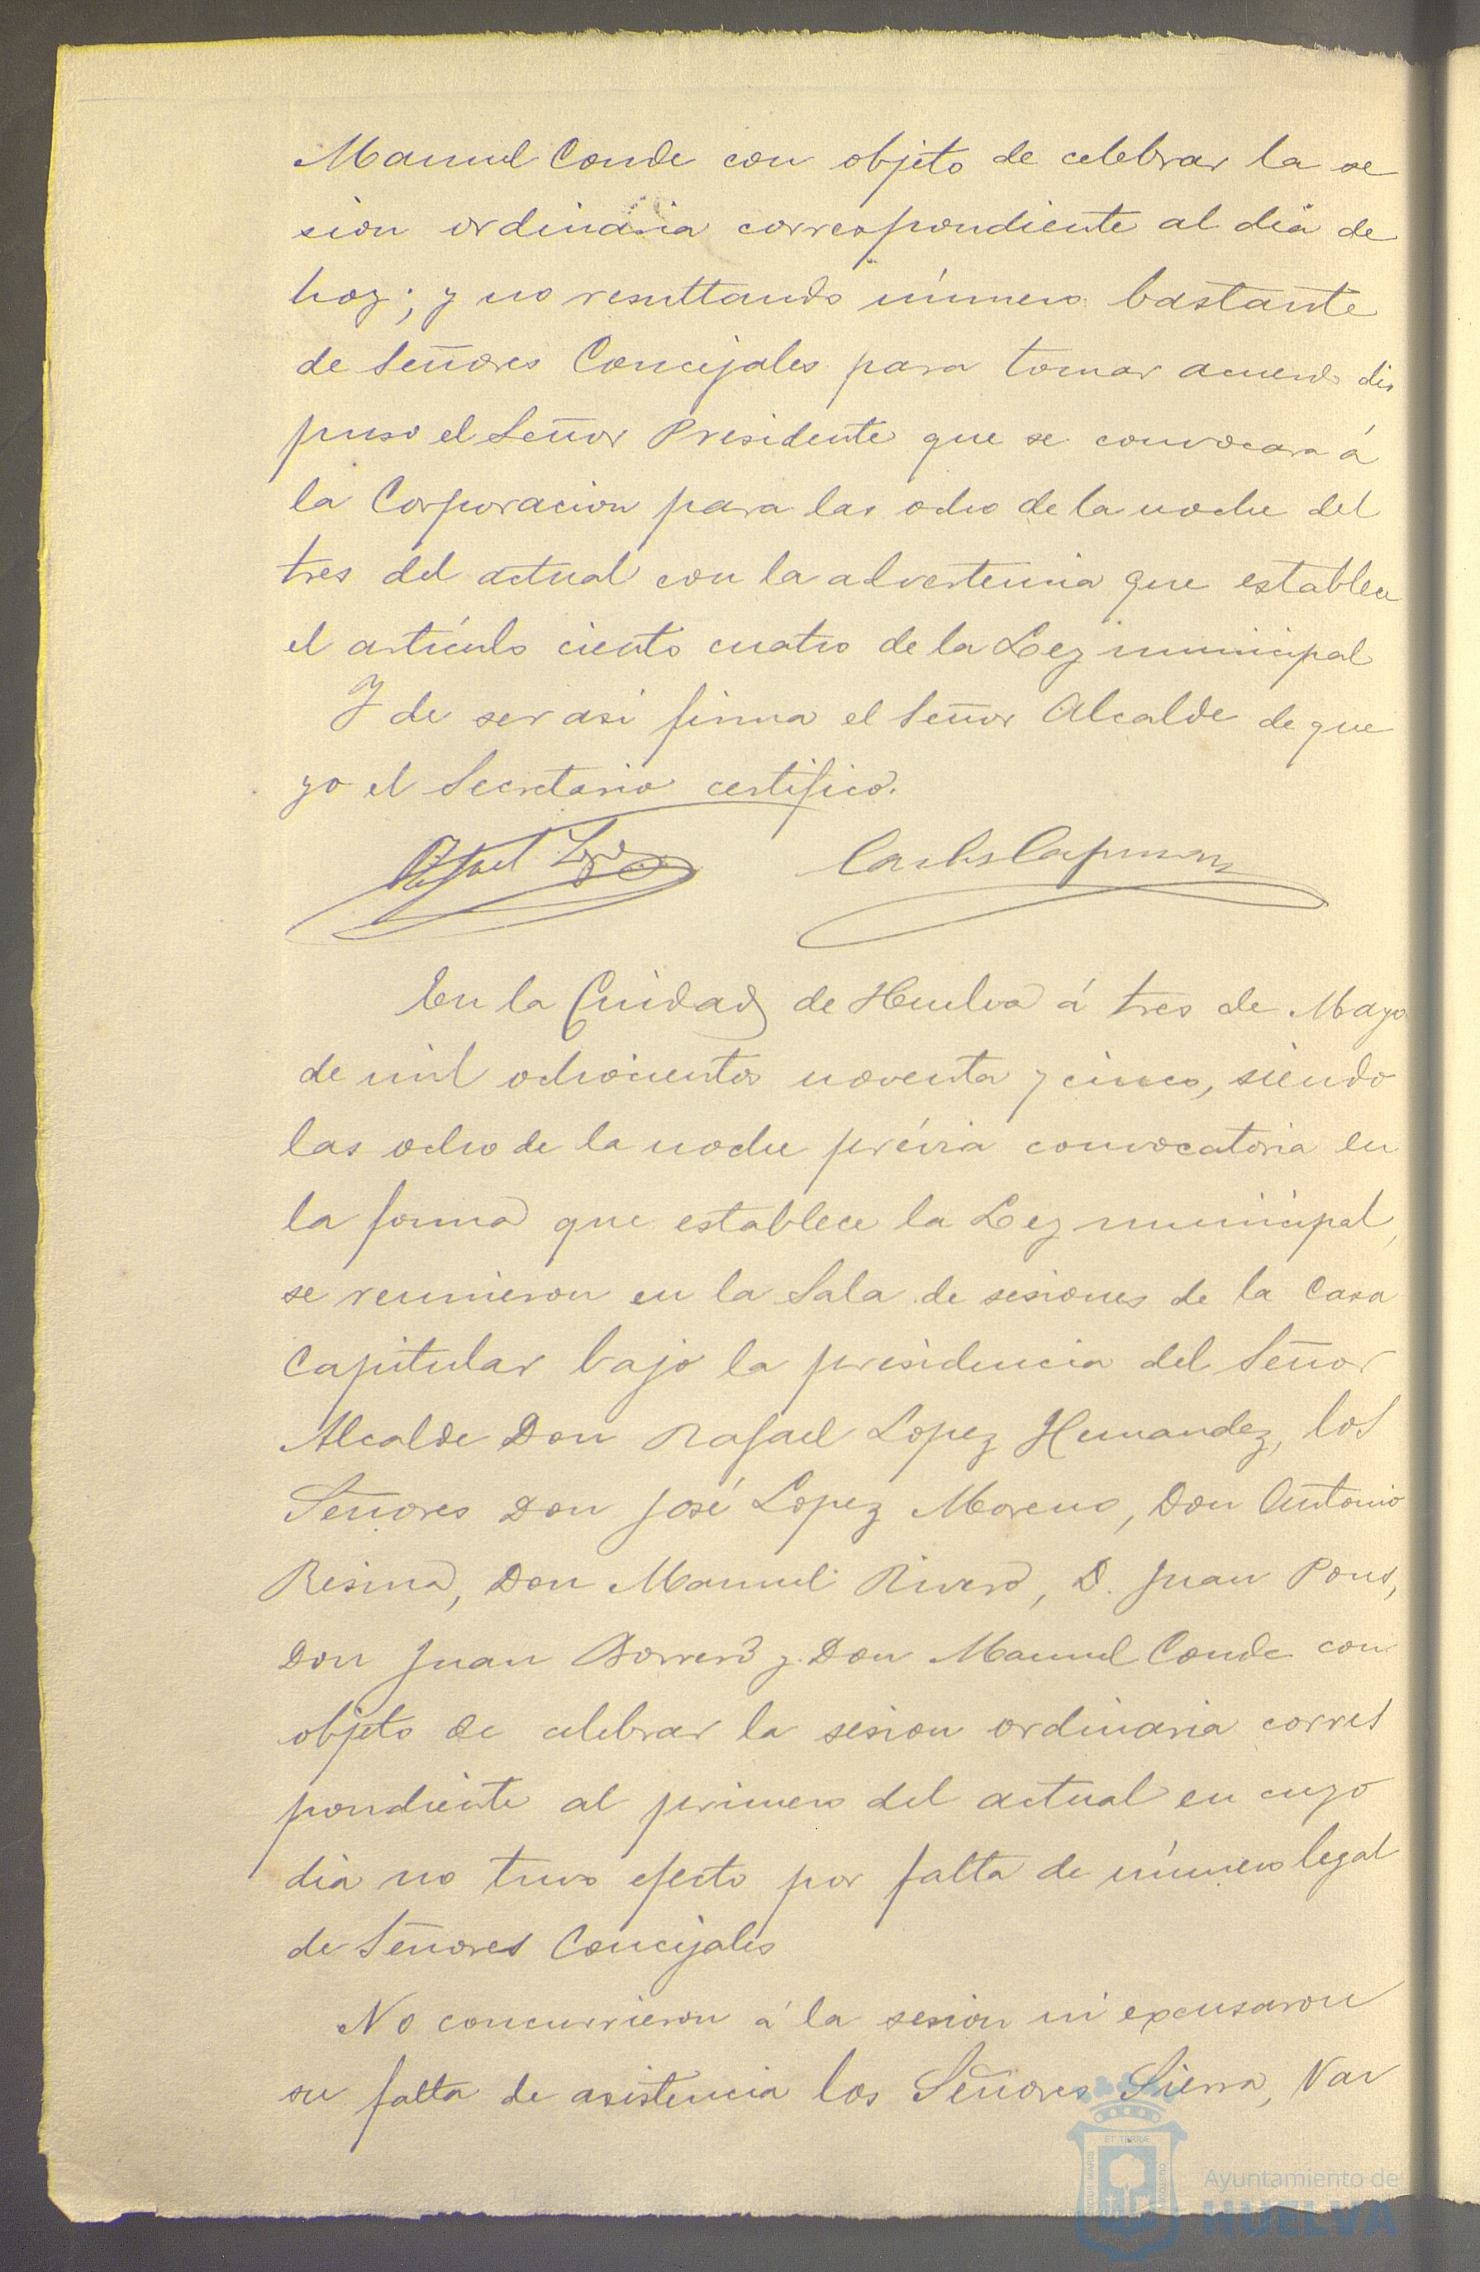 Manuel Conde con objeto de celebrar la se
sion ordinaria correspondiente al dia de
hoy; y no resultando número bastante
de Señores Concejales para tomar acuerdo dis
puso el Señor Presidente que se convocara á
la Corporacion para las ocho de la noche del
tres del actual con la advertencia que establece
el artículo ciento cuatro de la Ley municipal
Y de ser asi firma el Señor Alcalde de que
yo el Secretario certifico.
Rafael Lopez Carlos
En la Ciudad de Huelva á tres de Mayo
de mil ochocientos noventa y cinco, siendo
las ocho de la noche prévia convocatoria en
la forma que establece la Ley municipal,
se reunieron en la Sala de sesiones de la Casa
Capitular bajo la presidencia del Señor
Alcalde Don Rafael Lopez Hernandez, los
Señores Don José Lopez Moreno, Don Antonio
Resina, Don Manuel Rivero, D. Juan Pons,
Don Juan Borrero y Don Manuel Conde con
objeto de celebrar la sesion ordinaria corres
pondiente al primero del actual en cuyo
dia no tuvo efecto por falta de número legal
de Señores Concejales
No concurrieron á la sesion ni excusaron
su falta de asistencia los Señores Sierra, Var
Ayuntamiento de
HUELVA